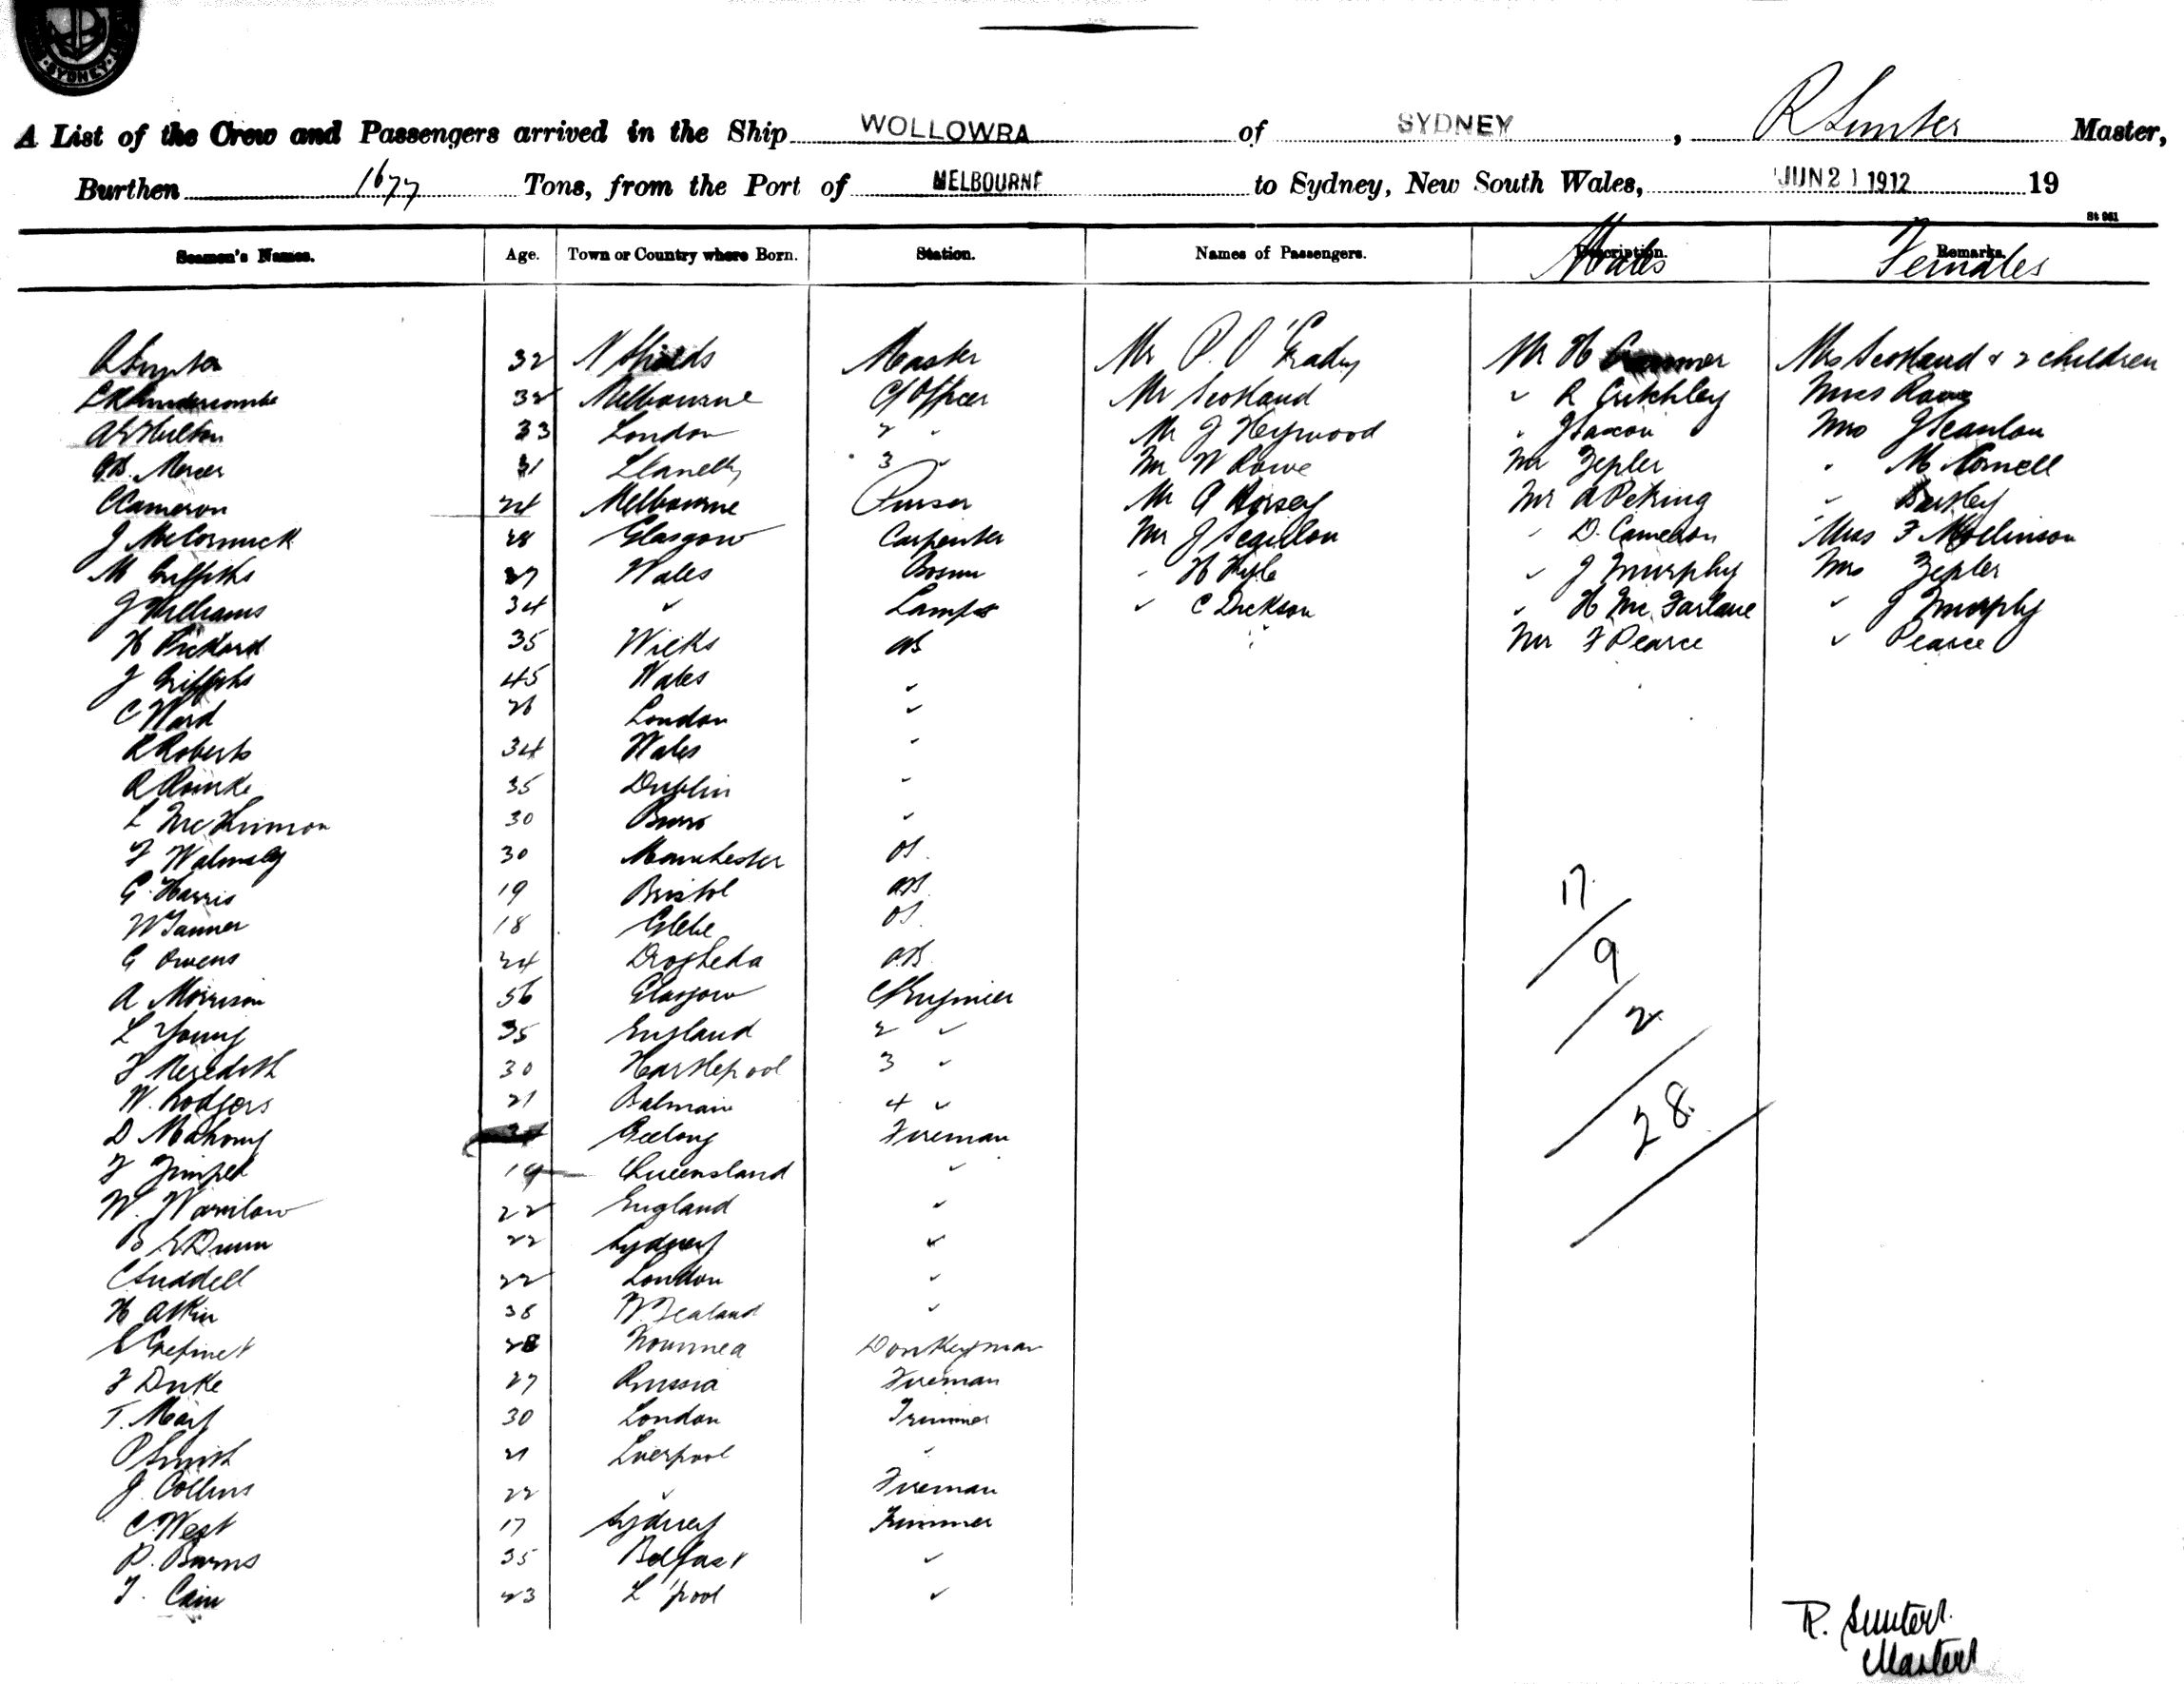 SYDNEY
A List of the Crew and Passengers arrived in the Ship WOLLOWRA of SYDNEY, R Sunter Master,
Burthen 1677 Tons, from the Port of MELBOURNE to Sydney, New South Wales, JUN 21 1912 19
St 961
Seamen's Names. Age. Town or Country where Born. Station. Names of Passengers. Description. Males Remarks. Females
R Sunter 32 N Shields Master Mr P. O'Grady Mr H Mrs Scotland & 2 children
32 Melbourne C/Officer Mr Scotland " R Critchley Miss Rowe
Hulton 33 London 2 " Mr J Heywood " J Saxon Mrs J Scanlon
Mercer 31 Llanelly 3 " Mr W Rowe Mr Zepler " M Cornell
C Cameron 24 Melbourne Purser Mr G Horsey Mr A Peking " Bartley
J McCormick 28 Glasgow Carpenter Mr J Scanlon " D. Cameron Miss F Mollinson
M Griffiths 37 Wales Bosun " H Hyle " J Murphy Mrs Zepler
J Williams 34 " Lamps " C Dickson " H Mc Farlane " J Murphy
H Pickard 35 Wicks AB Mr F Pearce " Pearce
J Griffiths 45 Wales "
C Ward 26 London "
R Roberts 34 Wales "
R Rourke 35 Dublin "
L McKinnon 30 "
F Walmsley 30 Manchester OS.
G. Harris 19 Bristol AB.
W Tanner 18 Glebe OS.
G Owens 24 Drogheda AB.
A Morrison 56 Glasgow C/Engineer
L Young 35 England 2 "
F Meredith 30 Hartlepool 3 "
W. Rodgers 21 Balmain 4 "
D Mahony Geelong Fireman
F 19 Queensland "
W. Warilow 22 England "
B E Dunn 22 Sydney "
C Luddell 22 London "
H Atkin 38 N. Zealand "
28 Noumea Donkeyman
F Duke 27 Russia Fireman
T. May 30 London Trimmer
P Smith 21 Liverpool "
J. Collins 22 " Fireman
C. West 17 Sydney Trimmer
P. Burns 35 Belfast "
T. Cain 23 L'pool "
17
9
2
28
R. Sunter
Master